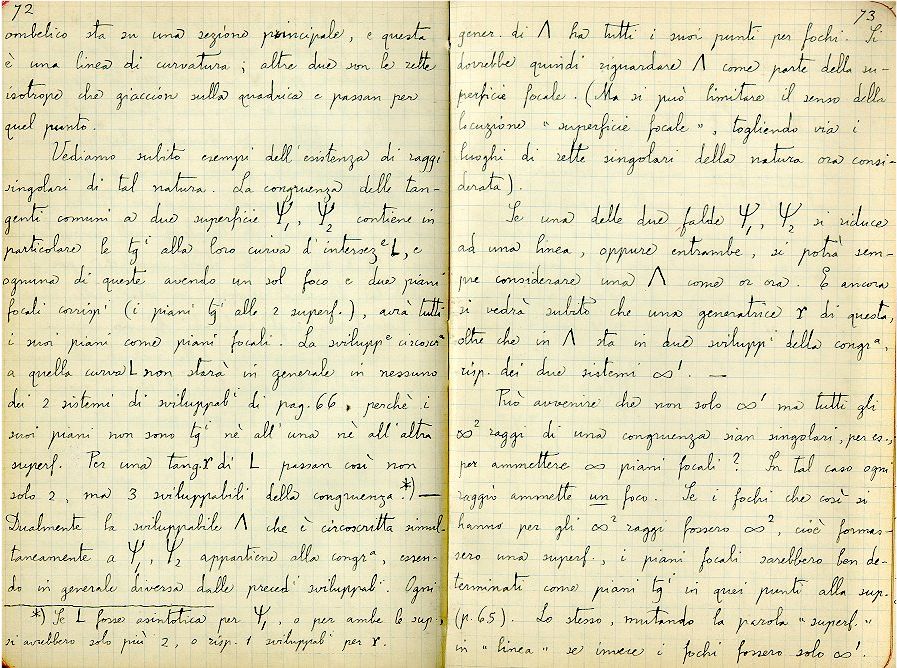 72
ombelico sta su una sezione principale, e questa
è una linea di curvatura; altre due son le rette
isotrope che giaccion sulla quadrica e passan per
quel punto.
Vediamo subito esempi dell'esistenza di raggi
singolari di tal natura. La congruenza delle tan-
genti comuni a due superficie Ψ₁, Ψ₂ contiene in
particolare le tgⁱ alla loro curva d'intersezᵉ L, e
ognuna di queste avendo un sol foco e due piani
focali corrispⁱ (i piani tgⁱ alle 2 superf.), avrà tutti
i suoi piani come piani focali. La sviluppᵉ circoscrᵃ
a quella curva L non starà in generale in nessuno
dei 2 sistemi di sviluppabⁱ di pag. 66, perchè i
suoi piani non sono tgⁱ nè all'una nè all'altra
superf. Per una tang. r di L passan così non
solo 2, ma 3 sviluppabili della congruenza.*) —
Dualmente la sviluppabile Λ che è circoscritta simul-
taneamente a Ψ₁, Ψ₂ appartiene alla congrᵃ, essen-
do in generale diversa dalle precedⁱ sviluppabⁱ. Ogni
*) Se L fosse asintotica per Ψ₁, o per ambe le sup.,
si avrebbero solo più 2, o risp. 1 sviluppabⁱ per r.
73
gener. di Λ ha tutti i suoi punti per fochi. Si
dovrebbe quindi riguardare Λ come parte della su-
perficie focale. (Ma si può limitare il senso della
locuzione "superficie focale", togliendo via i
luoghi di rette singolari della natura ora consi-
derata).
Se una delle due falde Ψ₁, Ψ₂ si riduce
ad una linea, oppure entrambe, si potrà sem-
pre considerare una Λ come or ora. E ancora
si vedrà subito che una generatrice r di questa,
oltre che in Λ sta in due sviluppⁱ della congrᵃ,
risp. dei due sistemi ∞¹. —
Può avvenire che non solo ∞¹ ma tutti gli
∞² raggi di una congruenza sian singolari, per es.,
per ammettere ∞ piani focali? In tal caso ogni
raggio ammette un foco. Se i fochi che così si
hanno per gli ∞² raggi fossero ∞², cioè formas-
sero una superf., i piani focali sarebbero ben de-
terminati come piani tgⁱ in quei punti alla sup.
(p. 65). Lo stesso, mutando la parola "superf."
in "linea" se invece i fochi fossero solo ∞¹.